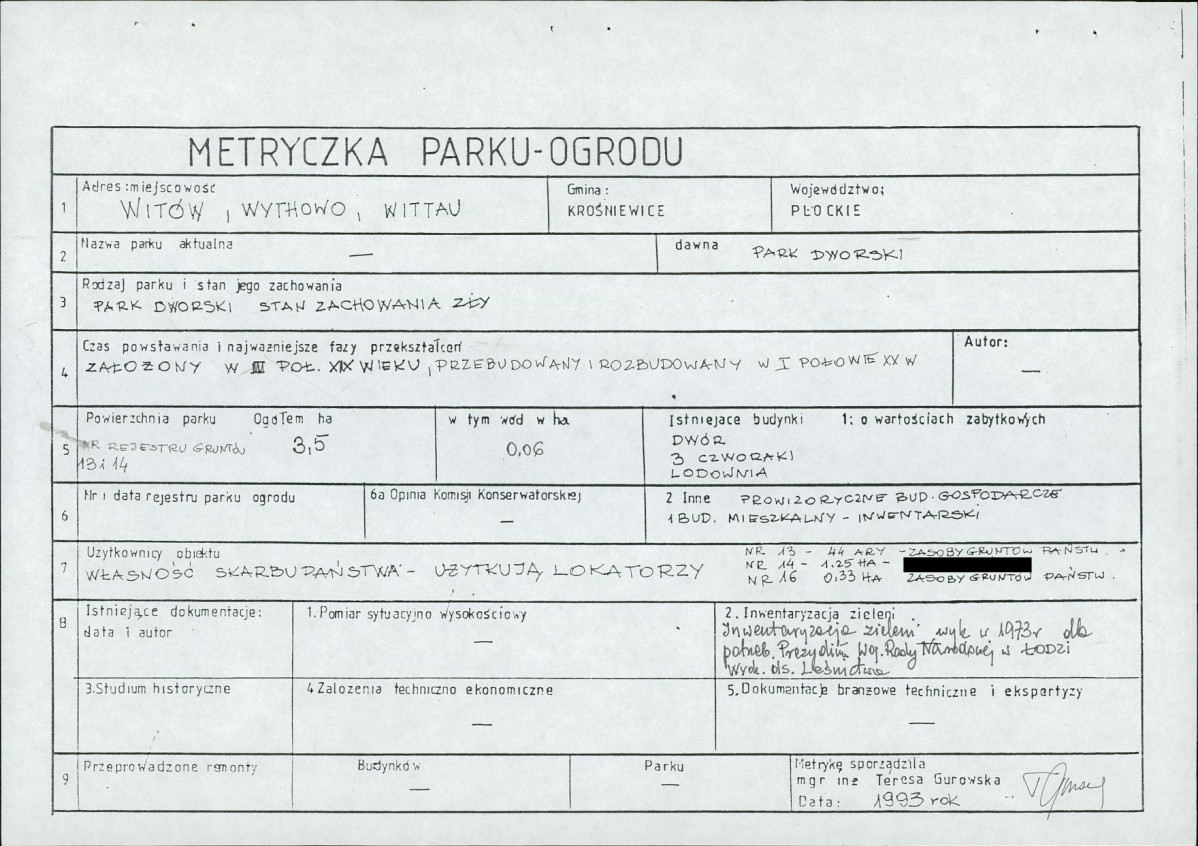 METRYCZKA PARKU-OGRODU
1 Adres: miejscowość
WITÓW, WYTHOWO, WITTAU
Gmina:
KROŚNIEWICE
Województwo:
PŁOCKIE
2 Nazwa parku aktualna
—
dawna PARK DWORSKI
3 Rodzaj parku i stan jego zachowania
PARK DWORSKI STAN ZACHOWANIA ZŁY
4 Czas powstawania i najważniejsze fazy przekształceń
ZAŁOŻONY W POŁ. XIX WIEKU, PRZEBUDOWANY I ROZBUDOWANY W I POŁOWIE XX W
Autor:
—
5 Powierzchnia parku Ogółem ha
NR REJESTRU GRUNTÓW 3,5
13 i 14
w tym wód w ha
0,06
Istniejace budynki 1: o wartościach zabytkowych
DWÓR
3 CZWORAKI
LODOWNIA
6 Nr i data rejestru parku ogrodu
6a Opinia Komisji Konserwatorskiej
—
2 Inne PROWIZORYCZNE BUD. GOSPODARCZE
1 BUD. MIESZKALNY - INWENTARSKI
7 Użytkownicy obiektu
WŁASNOŚĆ SKARBU PAŃSTWA - UŻYTKUJĄ LOKATORZY
NR 13 - 44 ARY - ZASOBY GRUNTÓW PAŃSTW.
NR 14 - 1.25 HA -
NR 16 0,33 HA ZASOBY GRUNTÓW PAŃSTW.
8 Istniejące dokumentacje:
data i autor
1. Pomiar sytuacyjno wysokościowy
—
2. Inwentaryzacja zieleni
Inwentaryzacja zieleni wyk w 1973r dla
potrzeb. Prezydium Woj. Rady Narodowej w ŁODZI
Wydz. ds. Leśnictwa
3. Studium historyczne
4 Założenia techniczno ekonomiczne
—
5. Dokumentacje branżowe techniczne i ekspertyzy
—
9 Przeprowadzone remonty
Budynków
—
Parku
—
Metrykę sporządziła
mgr inż Teresa Gurowska
Data: 1993 rok